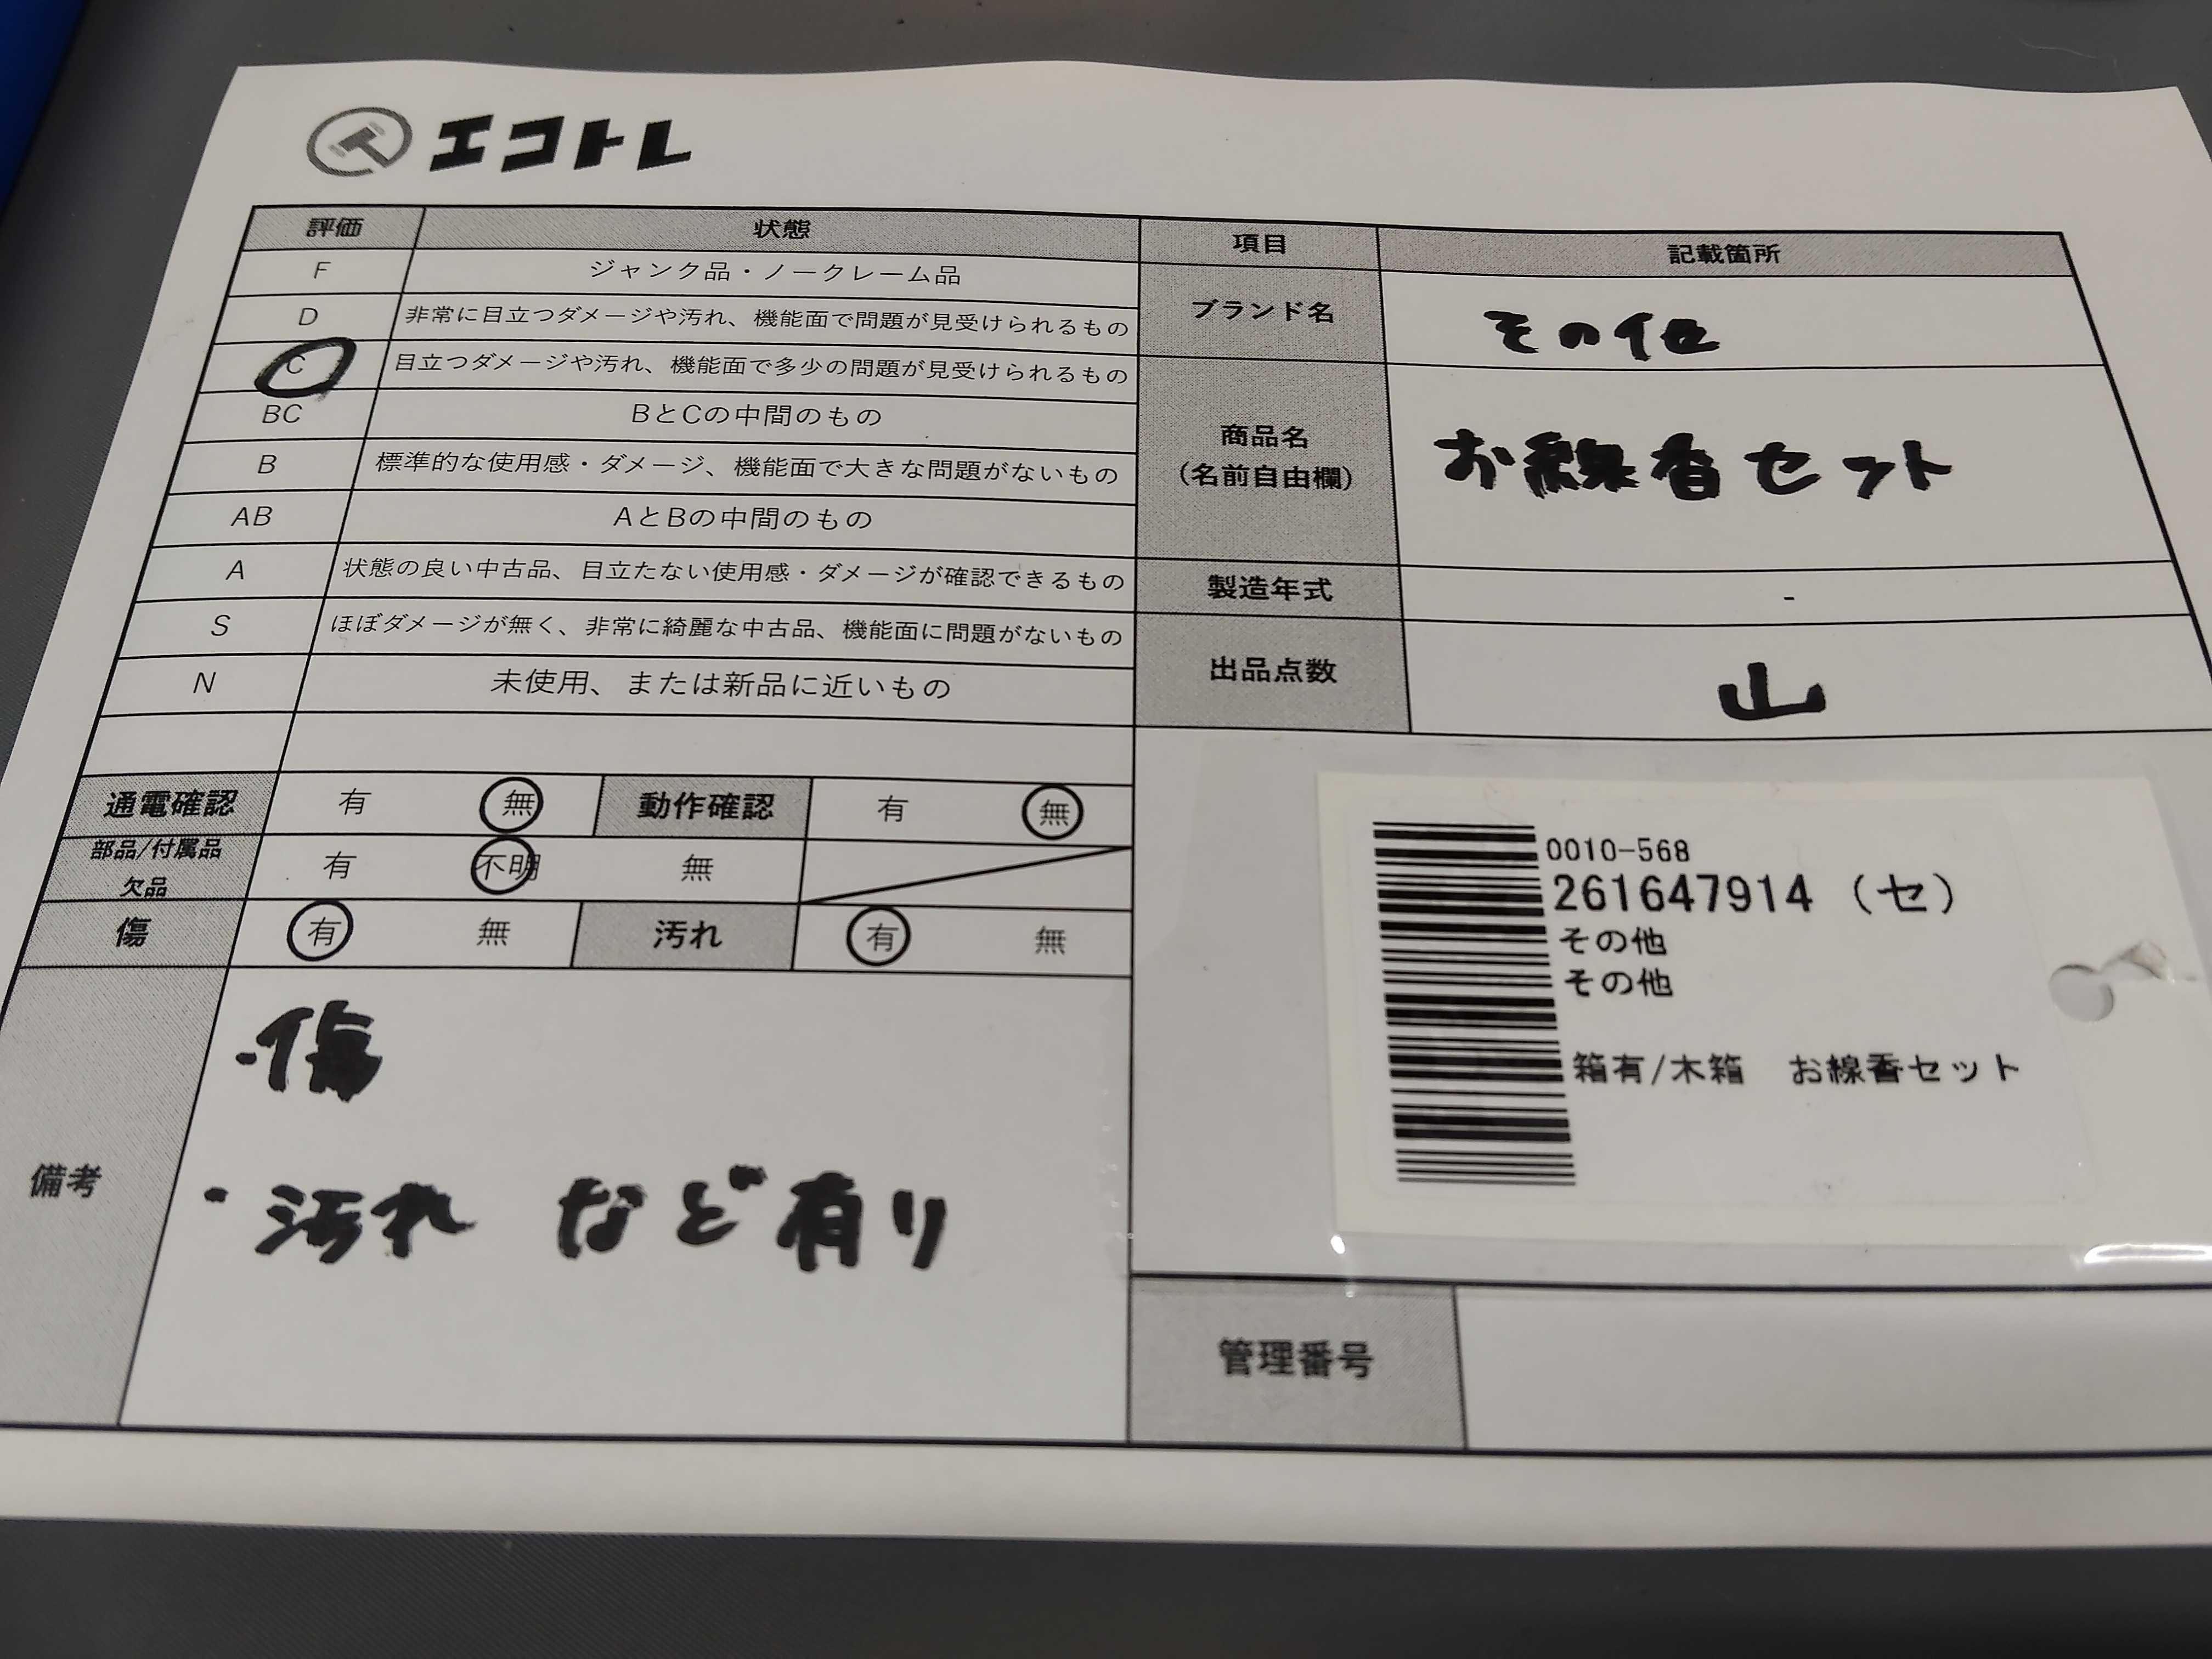 エコトレ
評価 状態
F ジャンク品・ノークレーム品
D 非常に目立つダメージや汚れ、機能面で問題が見受けられるもの
C 目立つダメージや汚れ、機能面で多少の問題が見受けられるもの
BC BとCの中間のもの
B 標準的な使用感・ダメージ、機能面で大きな問題がないもの
AB AとBの中間のもの
A 状態の良い中古品、目立たない使用感・ダメージが確認できるもの
S ほぼダメージが無く、非常に綺麗な中古品、機能面に問題がないもの
N 未使用、または新品に近いもの
通電確認 有 無 動作確認 有 無
部品/付属品
欠品 有 不明 無
傷 有 無 汚れ 有 無
備考
・傷
・汚れ など有り
項目 記載箇所
ブランド名 その他
商品名
(名前自由欄) お線香セット
製造年式 -
出品点数 山
0010-568
261647914 (セ)
その他
その他
箱有/木箱 お線香セット
管理番号